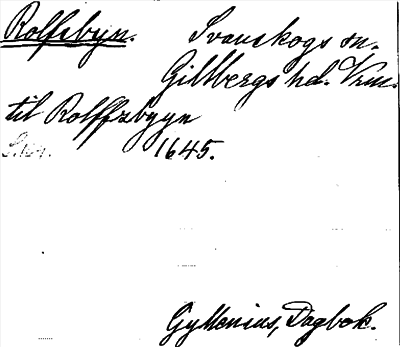 Rolfsbyn. Svanskogs sn.
Gillbergs hd. Vrml.
til Rolffzbyyn
S. 164. 1645.
Gyllenius, Dagbok.